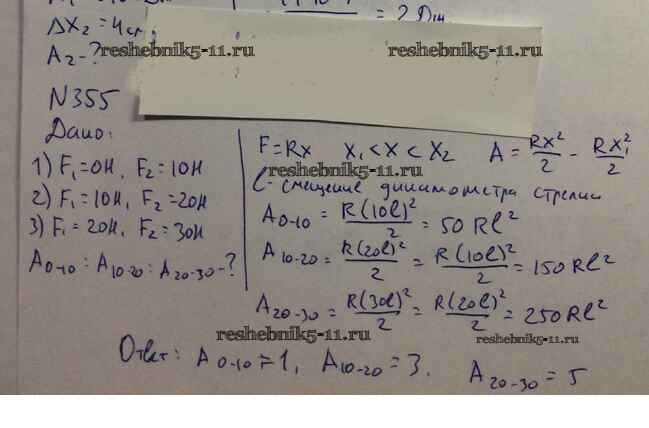 ΔX₂ = 4см.
= 2 Дж
A₂ - ?
reshebnik5-11.ru reshebnik5-11.ru
N355
Дано:
1) F₁=0H, F₂=10H
2) F₁=10H, F₂=20H
3) F₁=20H, F₂=30H
A₀₋₁₀ : A₁₀₋₂₀ : A₂₀₋₃₀ - ?
reshebnik5-11.ru
F=Rx X₁<X<X₂ A = RX²/2 - RX₁²/2
reshebnik5-11.ru
l - смещение динамометра стрелки
A₀₋₁₀ = R(10l)²/2 = 50Rl²
A₁₀₋₂₀ = R(20l)²/2 = R(10l)²/2 = 150Rl²
A₂₀₋₃₀ = R(30l)²/2 = R(20l)²/2 = 250Rl²
reshebnik5-11.ru reshebnik5-11.ru
Ответ: A₀₋₁₀=1, A₁₀₋₂₀=3. A₂₀₋₃₀=5